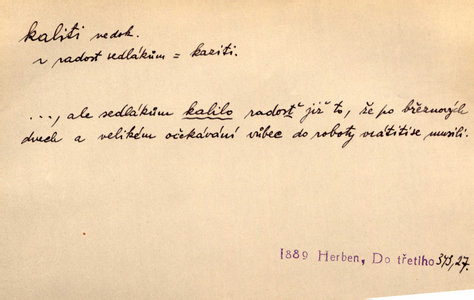 kaliti nedok.
v radost sedlákům = kaziti.
..., ale sedlákům kalilo radosť již to, že po březnových
dnech a velikém očekávání vůbec do roboty vrátiti se musili.
1889 Herben, Do třetího 373,27.